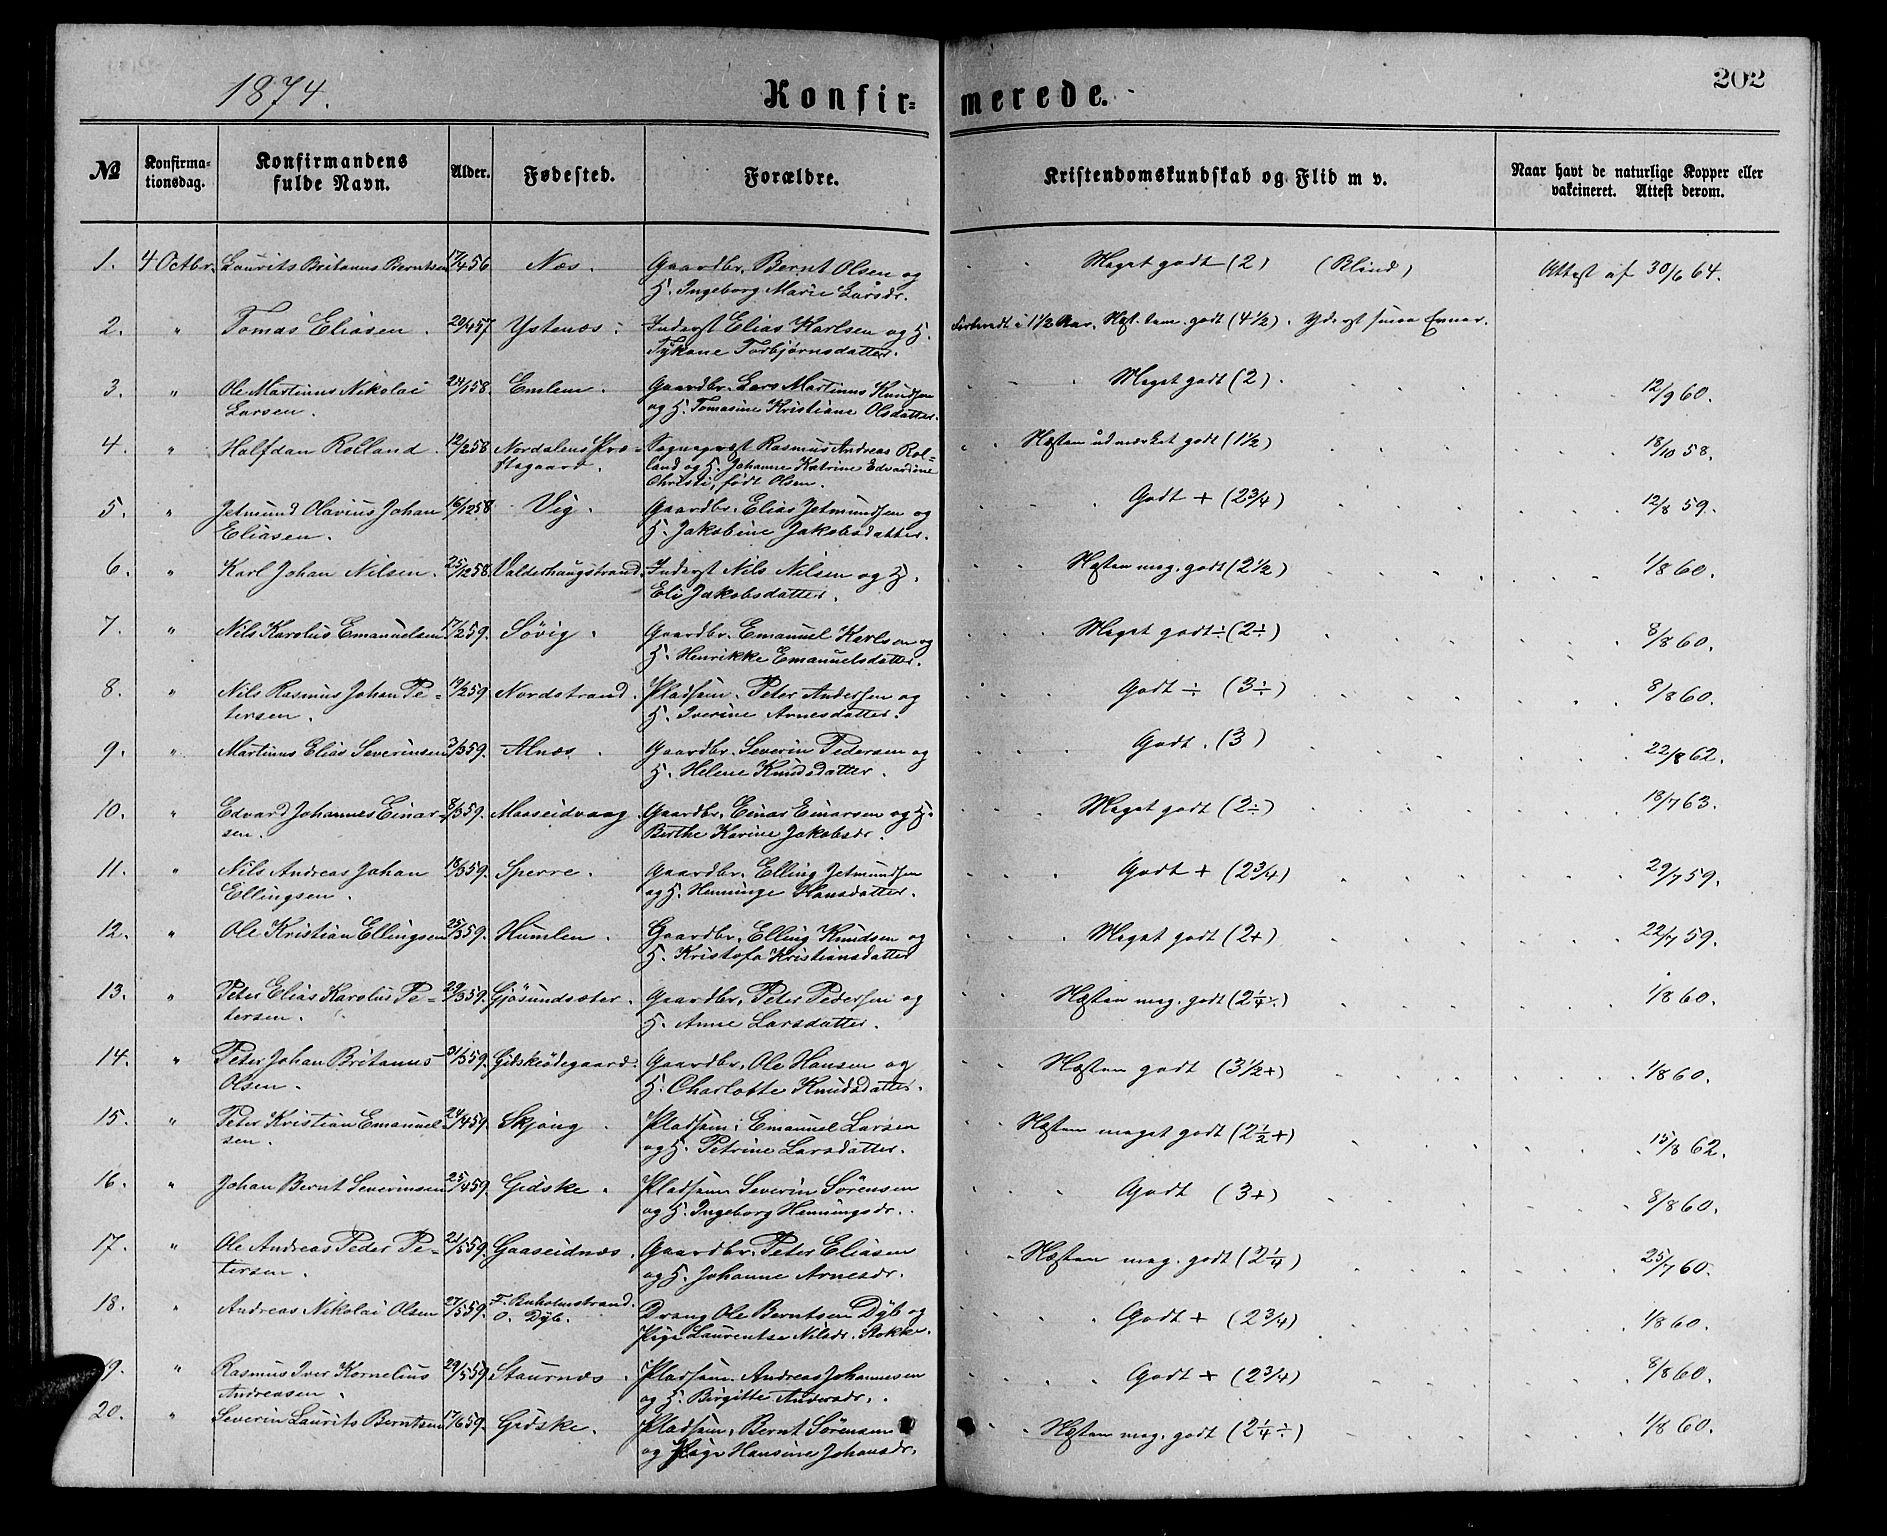 1874. Konfir= merede. 202
№ Konfirma= tionsdag. Konfirmandens fulde Navn. Alder. Fødested. Forældre. Kristendomskundskab og Flid m v. Naar havt de naturlige Kopper eller vakcineret. Attest derom.
1. 4 Octbr. Laurits Britanus Berntsen 17/4 56 Næs. Gaardbr. Bernt Olsen og Meget godt (2) (Blind) Attest af 30/6 64.
H. Ingeborg Marie Larsdr.
2. " Tomas Eliasen. 20/4 57 Ystenæs. Inderst Elias Karlsen og H. Forberedt i 1½ Aar. Næst. tem. godt (4½). Yderst smaa Evner.
Torbjørnsdatter.
3. " Ole Martinus Nikolai 24/1 58. Emlem. Gaardbr. Lars Martinus Knudsen Meget godt (2). 12/9 60.
Larsen. og H. Tomasine Kristiane Olsdatter.
4. " Halfdan Rolland. 12/2 58 Nordalens Præ= Sognepræst Rasmus Andreas Rol= Næsten udmærket godt (1½) 18/10 58.
stegaard. land og H. Johanne Katrine Edvardine
Christi, født Olsen.
5. " Jetmund Olavius Johan 16/12 58 Vig. Gaardbr. Elias Jetmundsen og Godt + (2¾) 12/8 59.
Eliasen. H. Jakobine Jakobsdatter.
6. " Karl Johan Nilsen. 25/12 58. Valderhaugstrand. Inderst Nils Nilsen og H. Næsten meg. godt (2½) 1/8 60.
Eli Jakobsdatter.
7. " Nils Karolus Emanuelsen 17/2 59. Søvig. Gaardbr. Emanuel Karlsen og Meget godt ÷ (2÷) 8/8 60.
H. Henrikke Emanuelsdatter.
8. " Nils Rasmus Johan Pe= 19/2 59. Nordstrand. Pladsem. Peter Andersen og Godt ÷ (3÷) 8/8 60.
tersen. H. Iverine Arnesdatter.
9. " Martinus Elias Severinsen 3/3 59. Alnæs. Gaardbr. Severin Pedersen og Godt. (3) 22/8 62.
H. Helene Knudsdatter.
10. " Edvard Johannes Einar= 8/3 59. Maaseidvaag. Gaardbr. Einar Einarsen og H. Meget godt (2÷) 18/7 63.
sen. Berthe Karine Jakobsdr.
11. " Nils Andreas Johan 18/3 59. Sperre. Gaardbr. Elling Jetmundsen Godt + (2¾) 29/7 59.
Ellingsen. og H. Henninge Hansdatter.
12. " Ole Kristian Ellingsen 25/3 59. Humlen. Gaardbr. Elling Knudsen og Meget godt (2+) 22/7 59.
H. Kristofa Kristiansdatter
13. " Peter Elias Karolus Pe= 29/3 59. Gjøsundsæter. Gaardbr. Peter Pedersen og Næsten meg. godt (2¼.) 1/8 60.
tersen. H. Anne Larsdatter.
14. " Peter Johan Britanus 31/3 59. Gidskeødegaard. Gaardbr. Ole Hansen og Næsten godt (3½+) 1/8 60.
Olsen. H. Charlotte Knudsdatter.
15. " Peter Kristian Emanuel= 24/4 59. Skjong. Pladsem. Emanuel Larsen Næsten meget godt (2½+) 15/8 62.
sen. og H. Petrine Larsdatter.
16. " Johan Bernt Severinsen 25/4 59. Gidske. Pladsem. Severin Sørensen Godt (3+) 8/8 60.
og H. Ingeborg Henningsdr.
17. " Ole Andreas Peder Pe= 21/5 59. Gaaseidnæs. Gaardbr. Peter Eliasen Næsten meg. godt (2¼) 25/7 60.
tersen. og H. Johanne Arnesdr.
18. " Andreas Nikolai Olsen 27/5 59. F. Buholmstrand. Dreng Ole Berntsen Dyb og Godt + (2¾) 1/8 60.
O. Dyb. Pige Laurentse Nilsdr. Stokke.
19. " Rasmus Iver Kornelius 29/5 59. Staurnæs. Pladsem. Andreas Johannesen Godt + (2¾) 8/8 60.
Andreasen. og H. Birgitte Andersdr.
20. " Severin Laurits Berntsen 17/6 59. Gidske. Pladsem. Bernt Sørensen Næsten meg. godt (2¼÷) 1/8 60.
og Pige Hansine Johansdr.